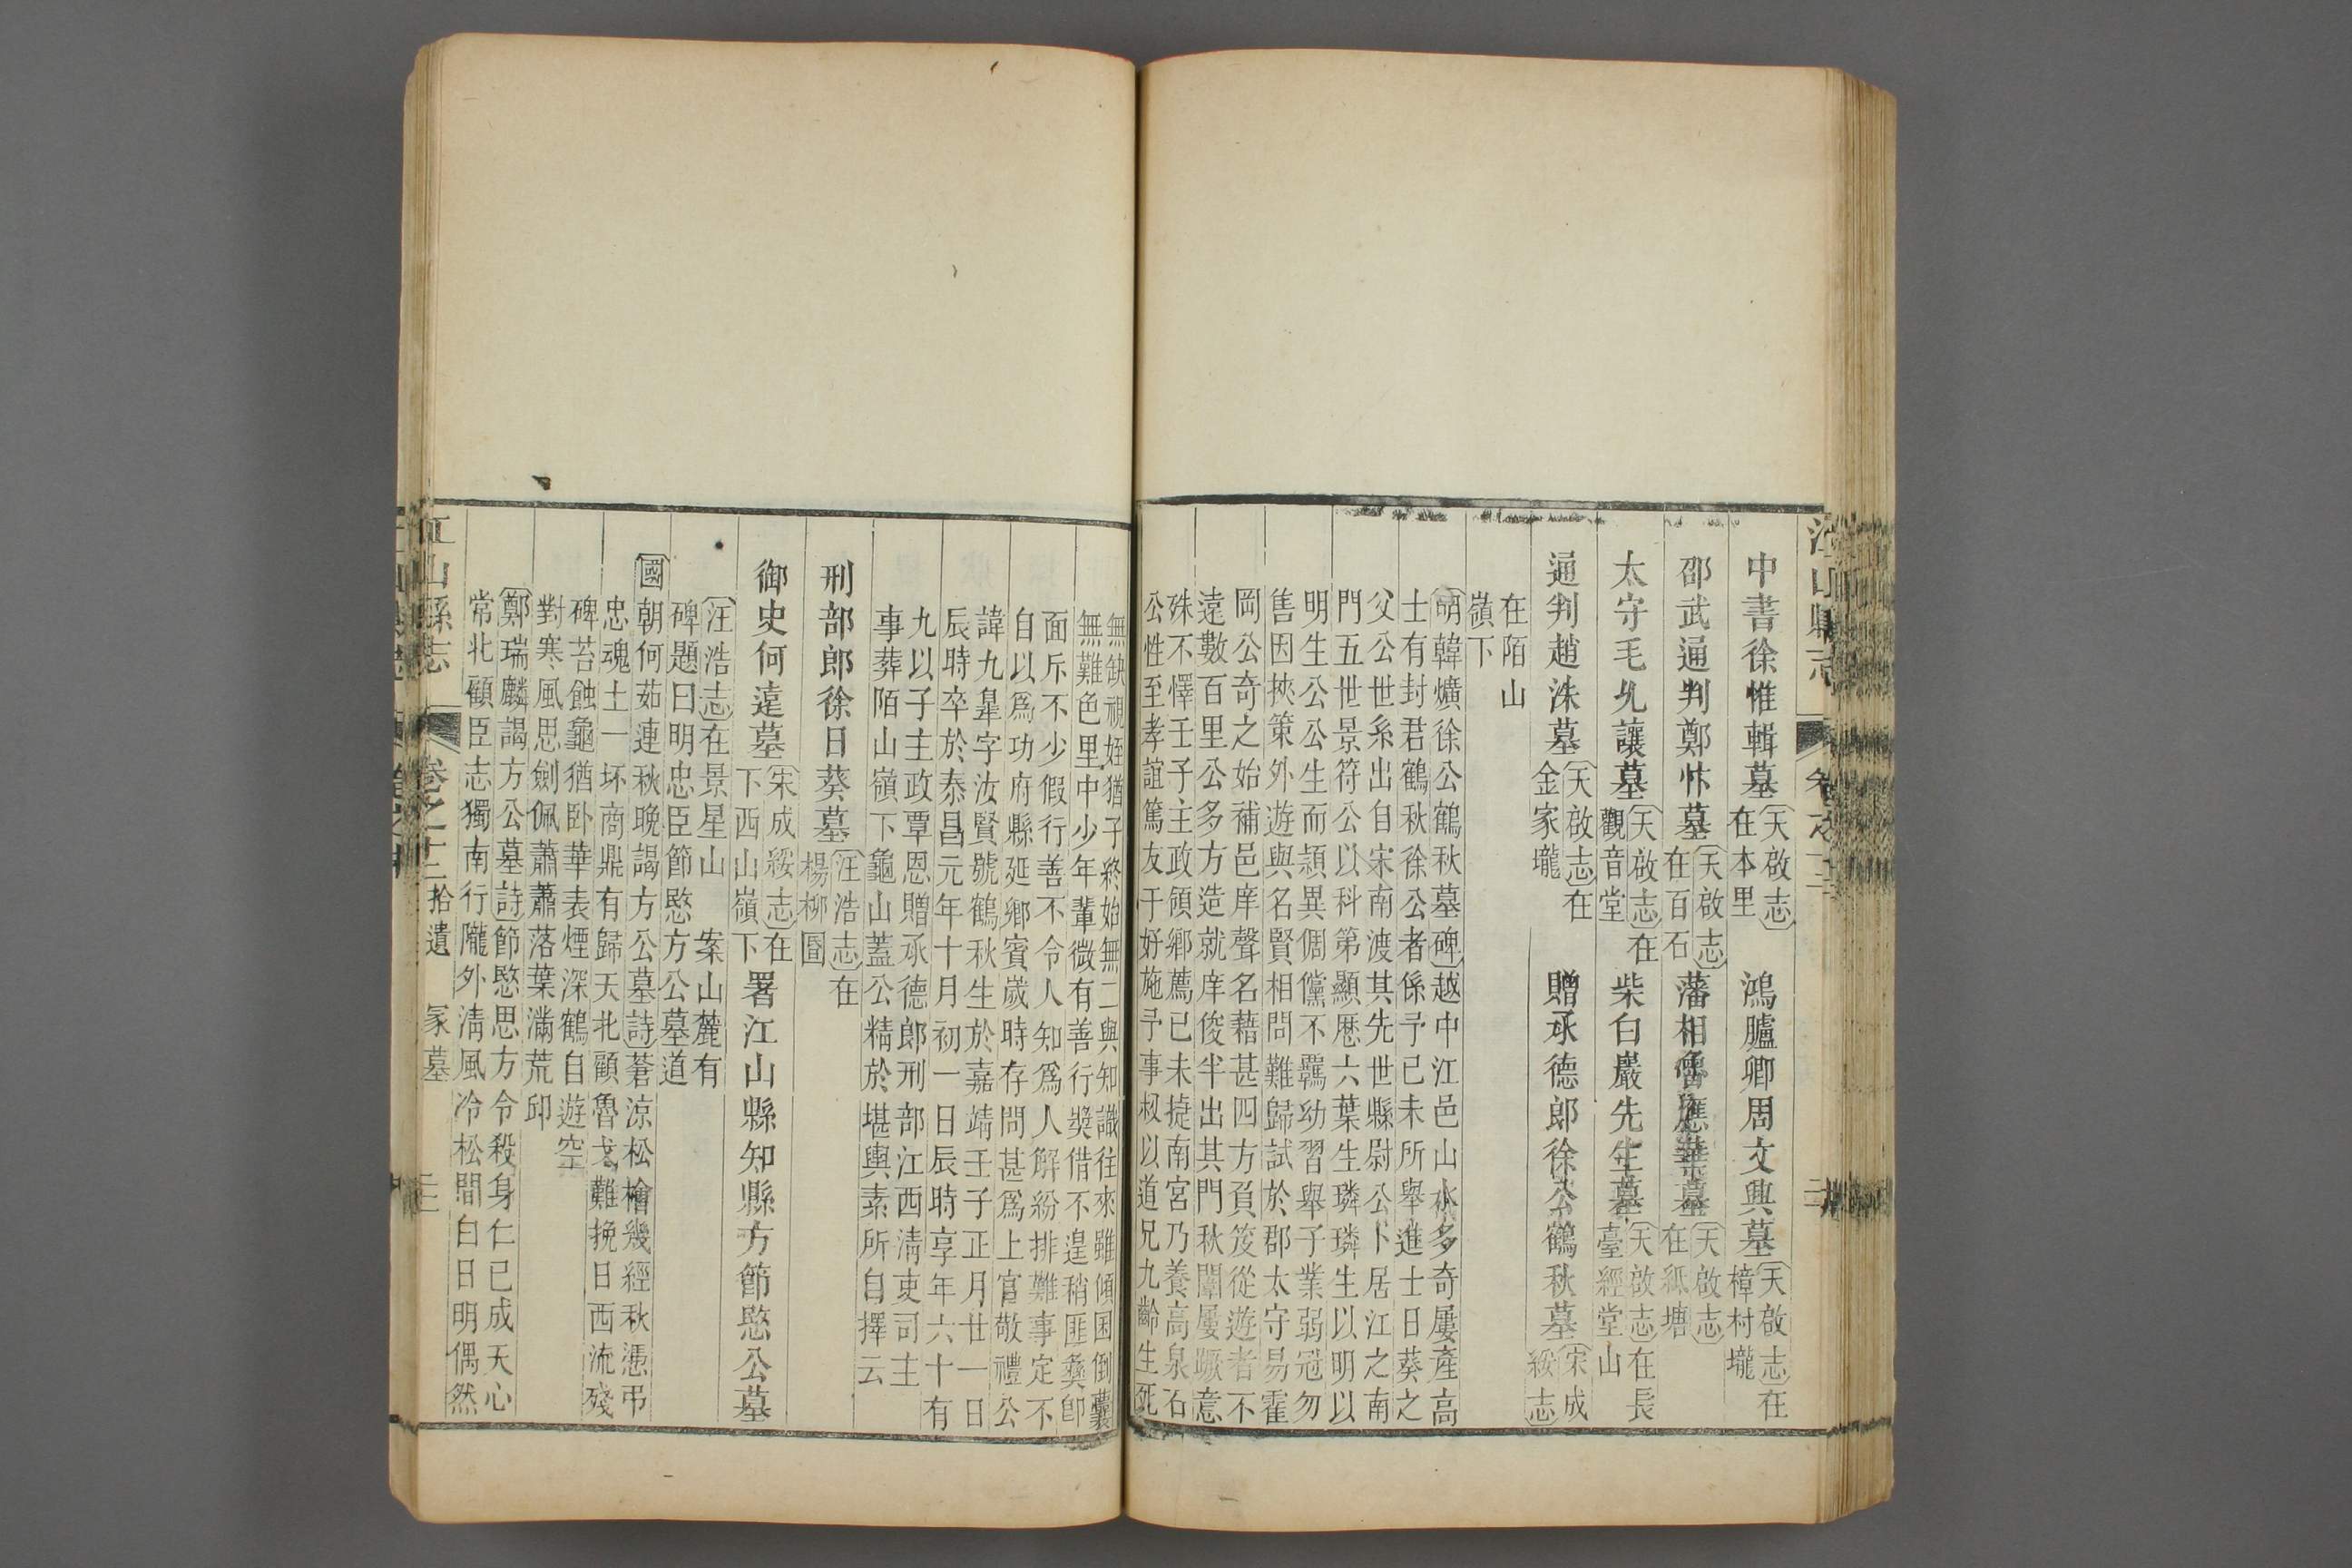 江山縣志
中書徐惟輯墓 天啟志在本里 鴻臚卿周文興墓 天啟志在樟村壠
邵武通判鄭怵墓 天啟志在百石 藩相魯應華墓 天啟志在紙塘
太守毛允讓墓 天啟志在觀音堂 柴白巖先生墓 天啟志在長臺經堂山
通判趙洙墓 天啟志在金家壠 贈承德郎徐公鶴秋墓 宋成綏志
在陌山
嶺下
明韓爌徐公鶴秋墓碑越中江邑山水多奇屢產高
士有封君鶴秋徐公者係予己未所舉進士日葵之
父公世系出自宋南渡其先世縣尉公卜居江之南
門五世景符公以科第顯歷六葉生璘璘生以明以
明生公公生而頴異倜儻不羈幼習舉子業弱冠勿
售因挾策外遊與名賢相問難歸試於郡太守易霍
岡公奇之始補邑庠聲名藉甚四方負笈從遊者不
遠數百里公多方造就庠俊半出其門秋闈屢蹶意
殊不懌壬子主政領鄉薦己未捷南宮乃養高泉石
公性至孝誼篤友于好施予事叔以道兄九齡生死
無缺視姪猶子終始無二與知識往來雖傾囷倒囊
無難色里中少年輩微有善行獎借不遑稍匪彝卽
面斥不少假行善不令人知爲人解紛排難事定不
自以爲功府縣延鄉賓歲時存問甚爲上官敬禮公
諱九臯字汝賢號鶴秋生於嘉靖壬子正月廿一日
辰時卒於泰昌元年十月初一日辰時享年六十有
九以子主政覃恩贈承德郎刑部江西清吏司主
事葬陌山嶺下龜山蓋公精於堪輿素所自擇云
刑部郎徐日葵墓 汪浩志在楊柳圖
御史何遠墓 宋成綏志在下西山嶺下 署江山縣知縣方節愍公墓
汪浩志在景星山 案山麓有
碑題曰明忠臣節愍方公墓道
國朝何茹連秋晚謁方公墓詩蒼涼松檜幾經秋憑弔
忠魂土一坏商鼎有歸天北顧魯戈難挽日西流殘
碑苔蝕龜猶卧華表煙深鶴自遊空
對寒風思劍佩蕭蕭落葉滿荒邱
鄭瑞麟謁方公墓詩節愍思方令殺身仁已成天心
常北顧臣志獨南行隴外淸風冷松間白日明偶然
江山縣志 卷之十二 拾遺 冢墓